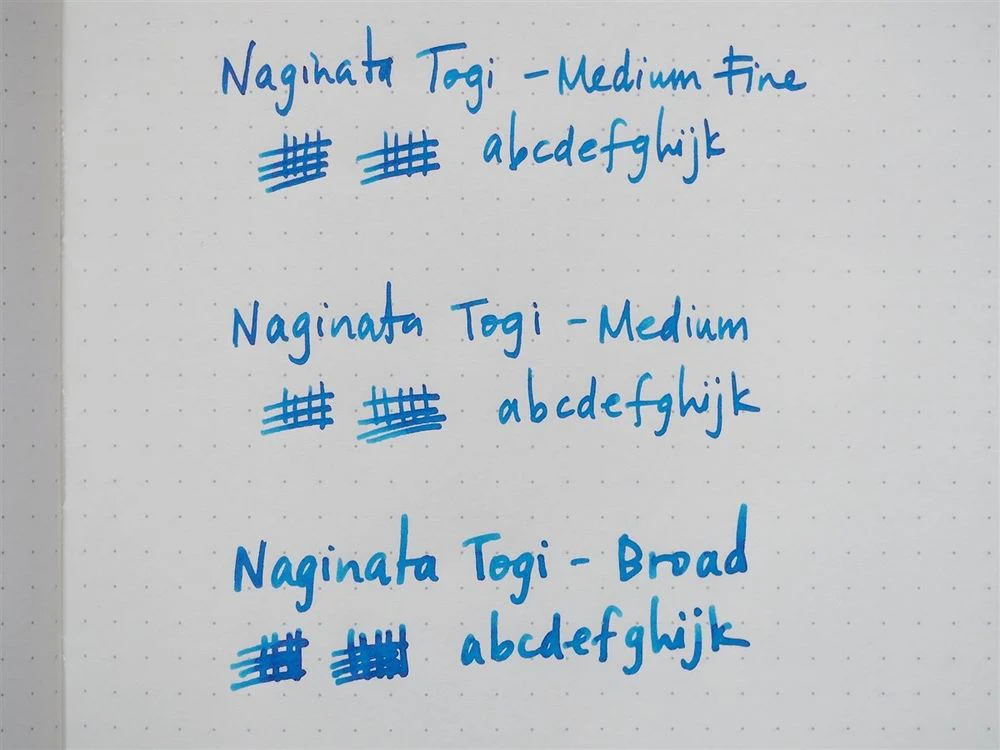 Naginata Togi - Medium Fine
abcdefghijk
Naginata Togi - Medium
abcdefghijk
Naginata Togi - Broad
abcdefghijk